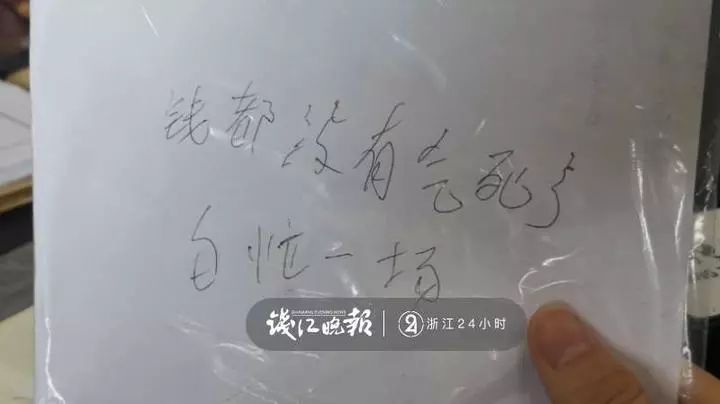 钱都没有气死了
白忙一场
钱江晚報 浙江24小时
QIANJIANG EVENING NEWS